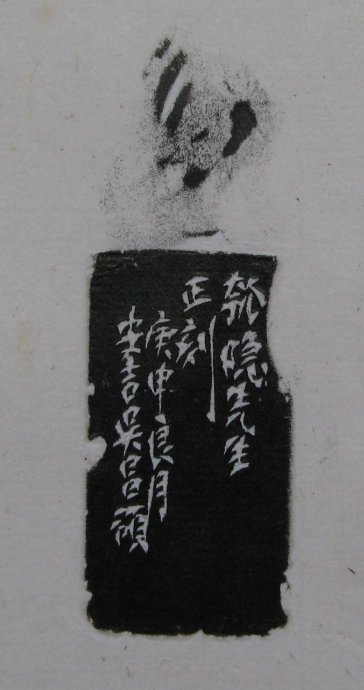 瓠隐先生
正刻
庚申良月
安吉吳昌碩